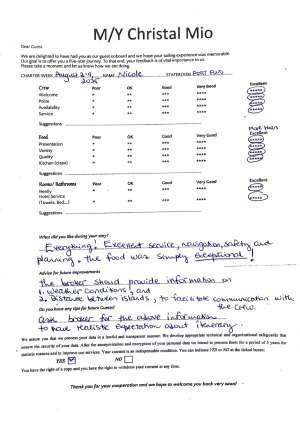 M/Y Christal Mio
Dear Guest,
We are delighted to have had you as our guest onboard and we hope your sailing experience was memorable.
Our goal is to offer you a five-star journey. To that end, your feedback is of vital importance to us.
Please take a moment and let us know how we are doing.
CHARTER WEEK August 2-9, 2025 NAME Nicole STATEROOM PORT
Crew Poor OK Good Very Good Excellent
Welcome * ** *** **** *****
Polite * ** *** **** *****
Availability * ** *** **** *****
Service * ** *** **** *****
Suggestions
Food Poor OK Good Very Good Excellent
Presentation * ** *** **** *****
Variety * ** *** **** *****
Quality * ** *** **** *****
Kitchen (class) * ** *** **** *****
Suggestions
Rooms/ Bathrooms Poor OK Good Very Good Excellent
Ready * ** *** **** *****
Hotel Service
(Towels, Bed...) * ** *** **** *****
Suggestions
What did you like during your stay?
Everything! Excellent service, navigation, safety and
planning. the food was simply exceptional!
Advice for future improvements
the broker should provide information on
1. weather conditions, and
2. Distance between islands, to facilitate communication with
the crew.
Do you have any tips for future Guests?
ask broker for the above information
to have realistic expectation about itinerary.
We assure you that we process your data in a lawful and transparent manner. We develop appropriate technical and organizational safeguards that
ensure the security of your data. After the anonymization and encryption of your personal data we intend to process them for a period of 5 years for
statistic reasons and to improve our services. Your consent is an indispensable condition. You can indicate YES or NO at the ticked boxes:
YES NO
You have the right of a copy and you have the right to withdraw your consent at any time.
Thank you for your cooperation and we hope to welcome you back very soon!